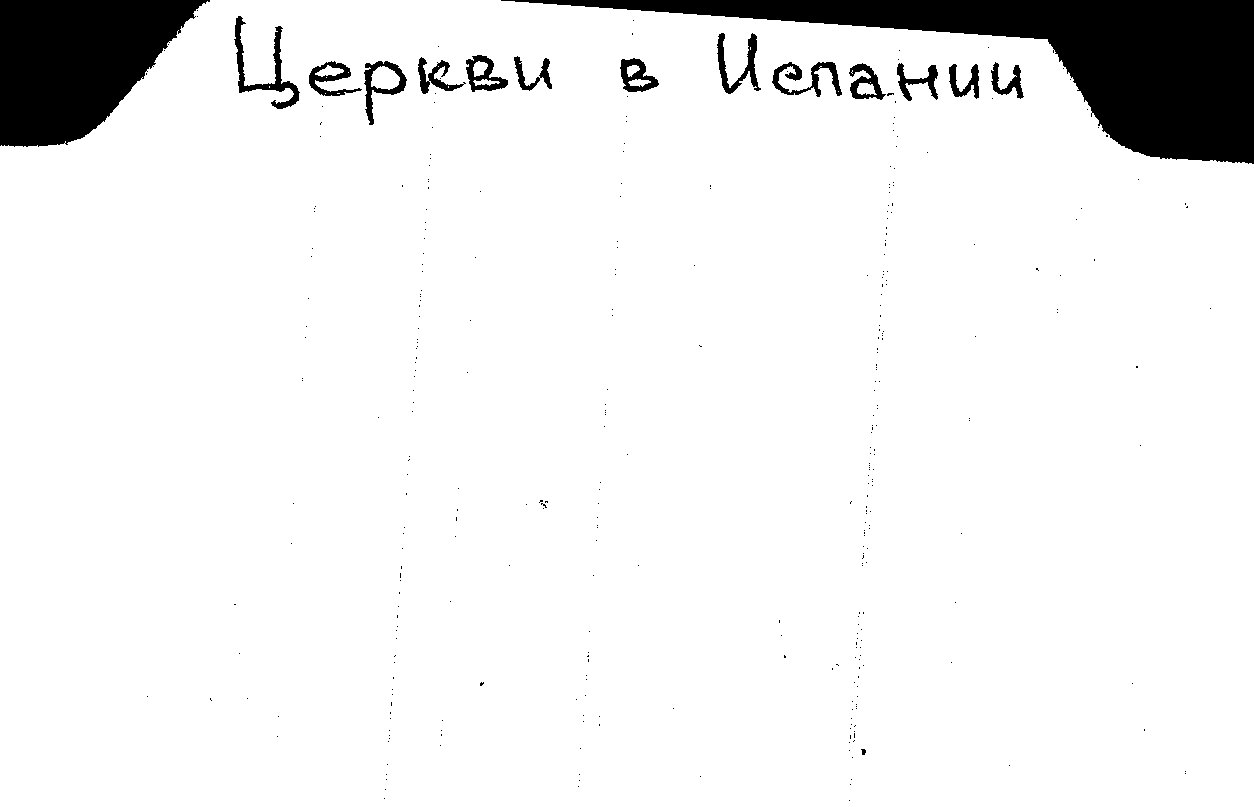 Церкви в Испании